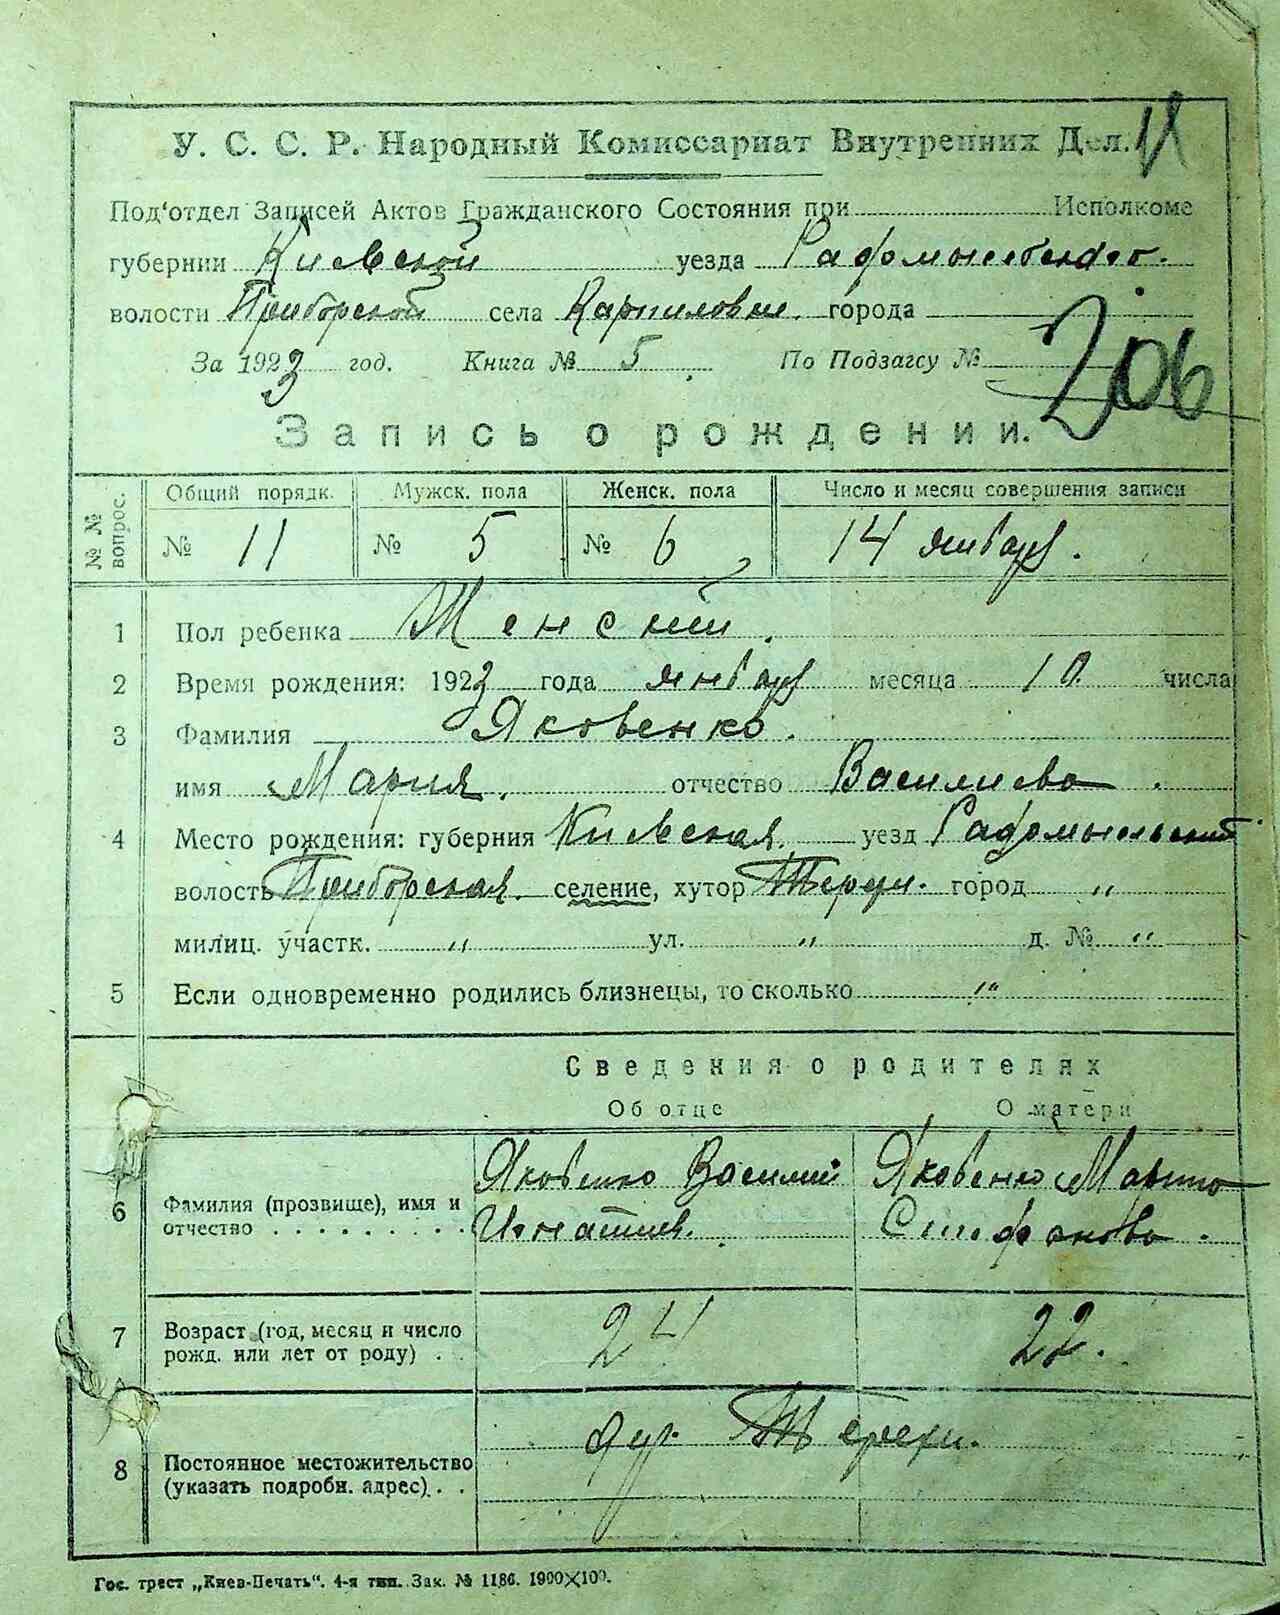 У. С. С. Р. Народный Комиссариат Внутренних Дел.
11
Под'отдел Записей Актов Гражданского Состояния при Исполкоме
губернии Киевской уезда Радомысльского.
волости Приборской села Карпиловки. города
За 1923 год. Книга № 5 По Подзагсу №
206
Запись о рождении.
№ № вопрос. Общий порядк. Мужск. пола Женск. пола Число и месяц совершения записи
№ 11 № 5 № 6 14 января.
1 Пол ребенка Женский.
2 Время рождения: 1923 года января месяца 10 числа
3 Фамилия Яковенко.
имя Мария. отчество Василиева.
4 Место рождения: губерния Киевская. уезд Радомысльский
волость Приборская. селение, хутор Терехи. город "
милиц. участк. " ул. " д. № "
5 Если одновременно родились близнецы, то сколько "
Сведения о родителях
Об отце О матери
6 Фамилия (прозвище), имя и отчество Яковенко Василий Игнатиев. Яковенко Марина Стефанова.
7 Возраст (год, месяц и число рожд. или лет от роду) 24 22.
8 Постоянное местожительство (указать подробн. адрес) дер. Терехи.
Гос. трест „Киев-Печать". 4-я тип. Зак. № 1186. 1900×100.